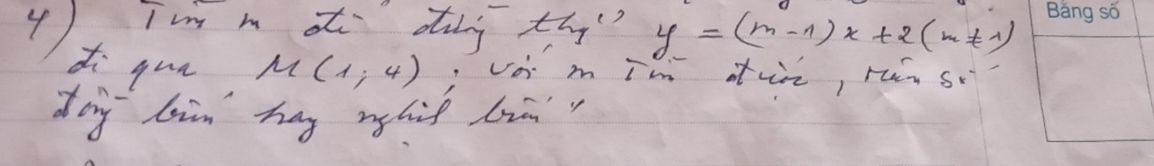 4) Tìm m để đường thẳng y = (m-1)x + 2 (m ≠ 1)
đi qua M(1; 4). Với m tìm được, hàm số
đồng biến hay nghịch biến
Bằng số